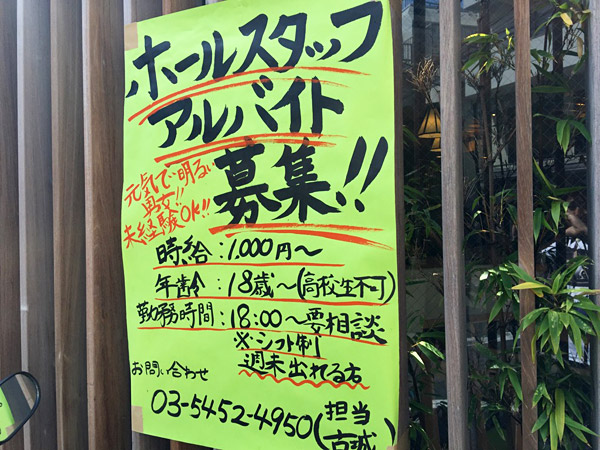 ホールスタッフ
アルバイト
募集!!
元気で明るい
男女!!
未経験OK!!
時給:1,000円〜
年齢:18歳〜(高校生不可)
勤務時間:18:00〜要相談
※シフト制
週末出れる方
お問い合わせ
03-5452-4950(担当
古誠)